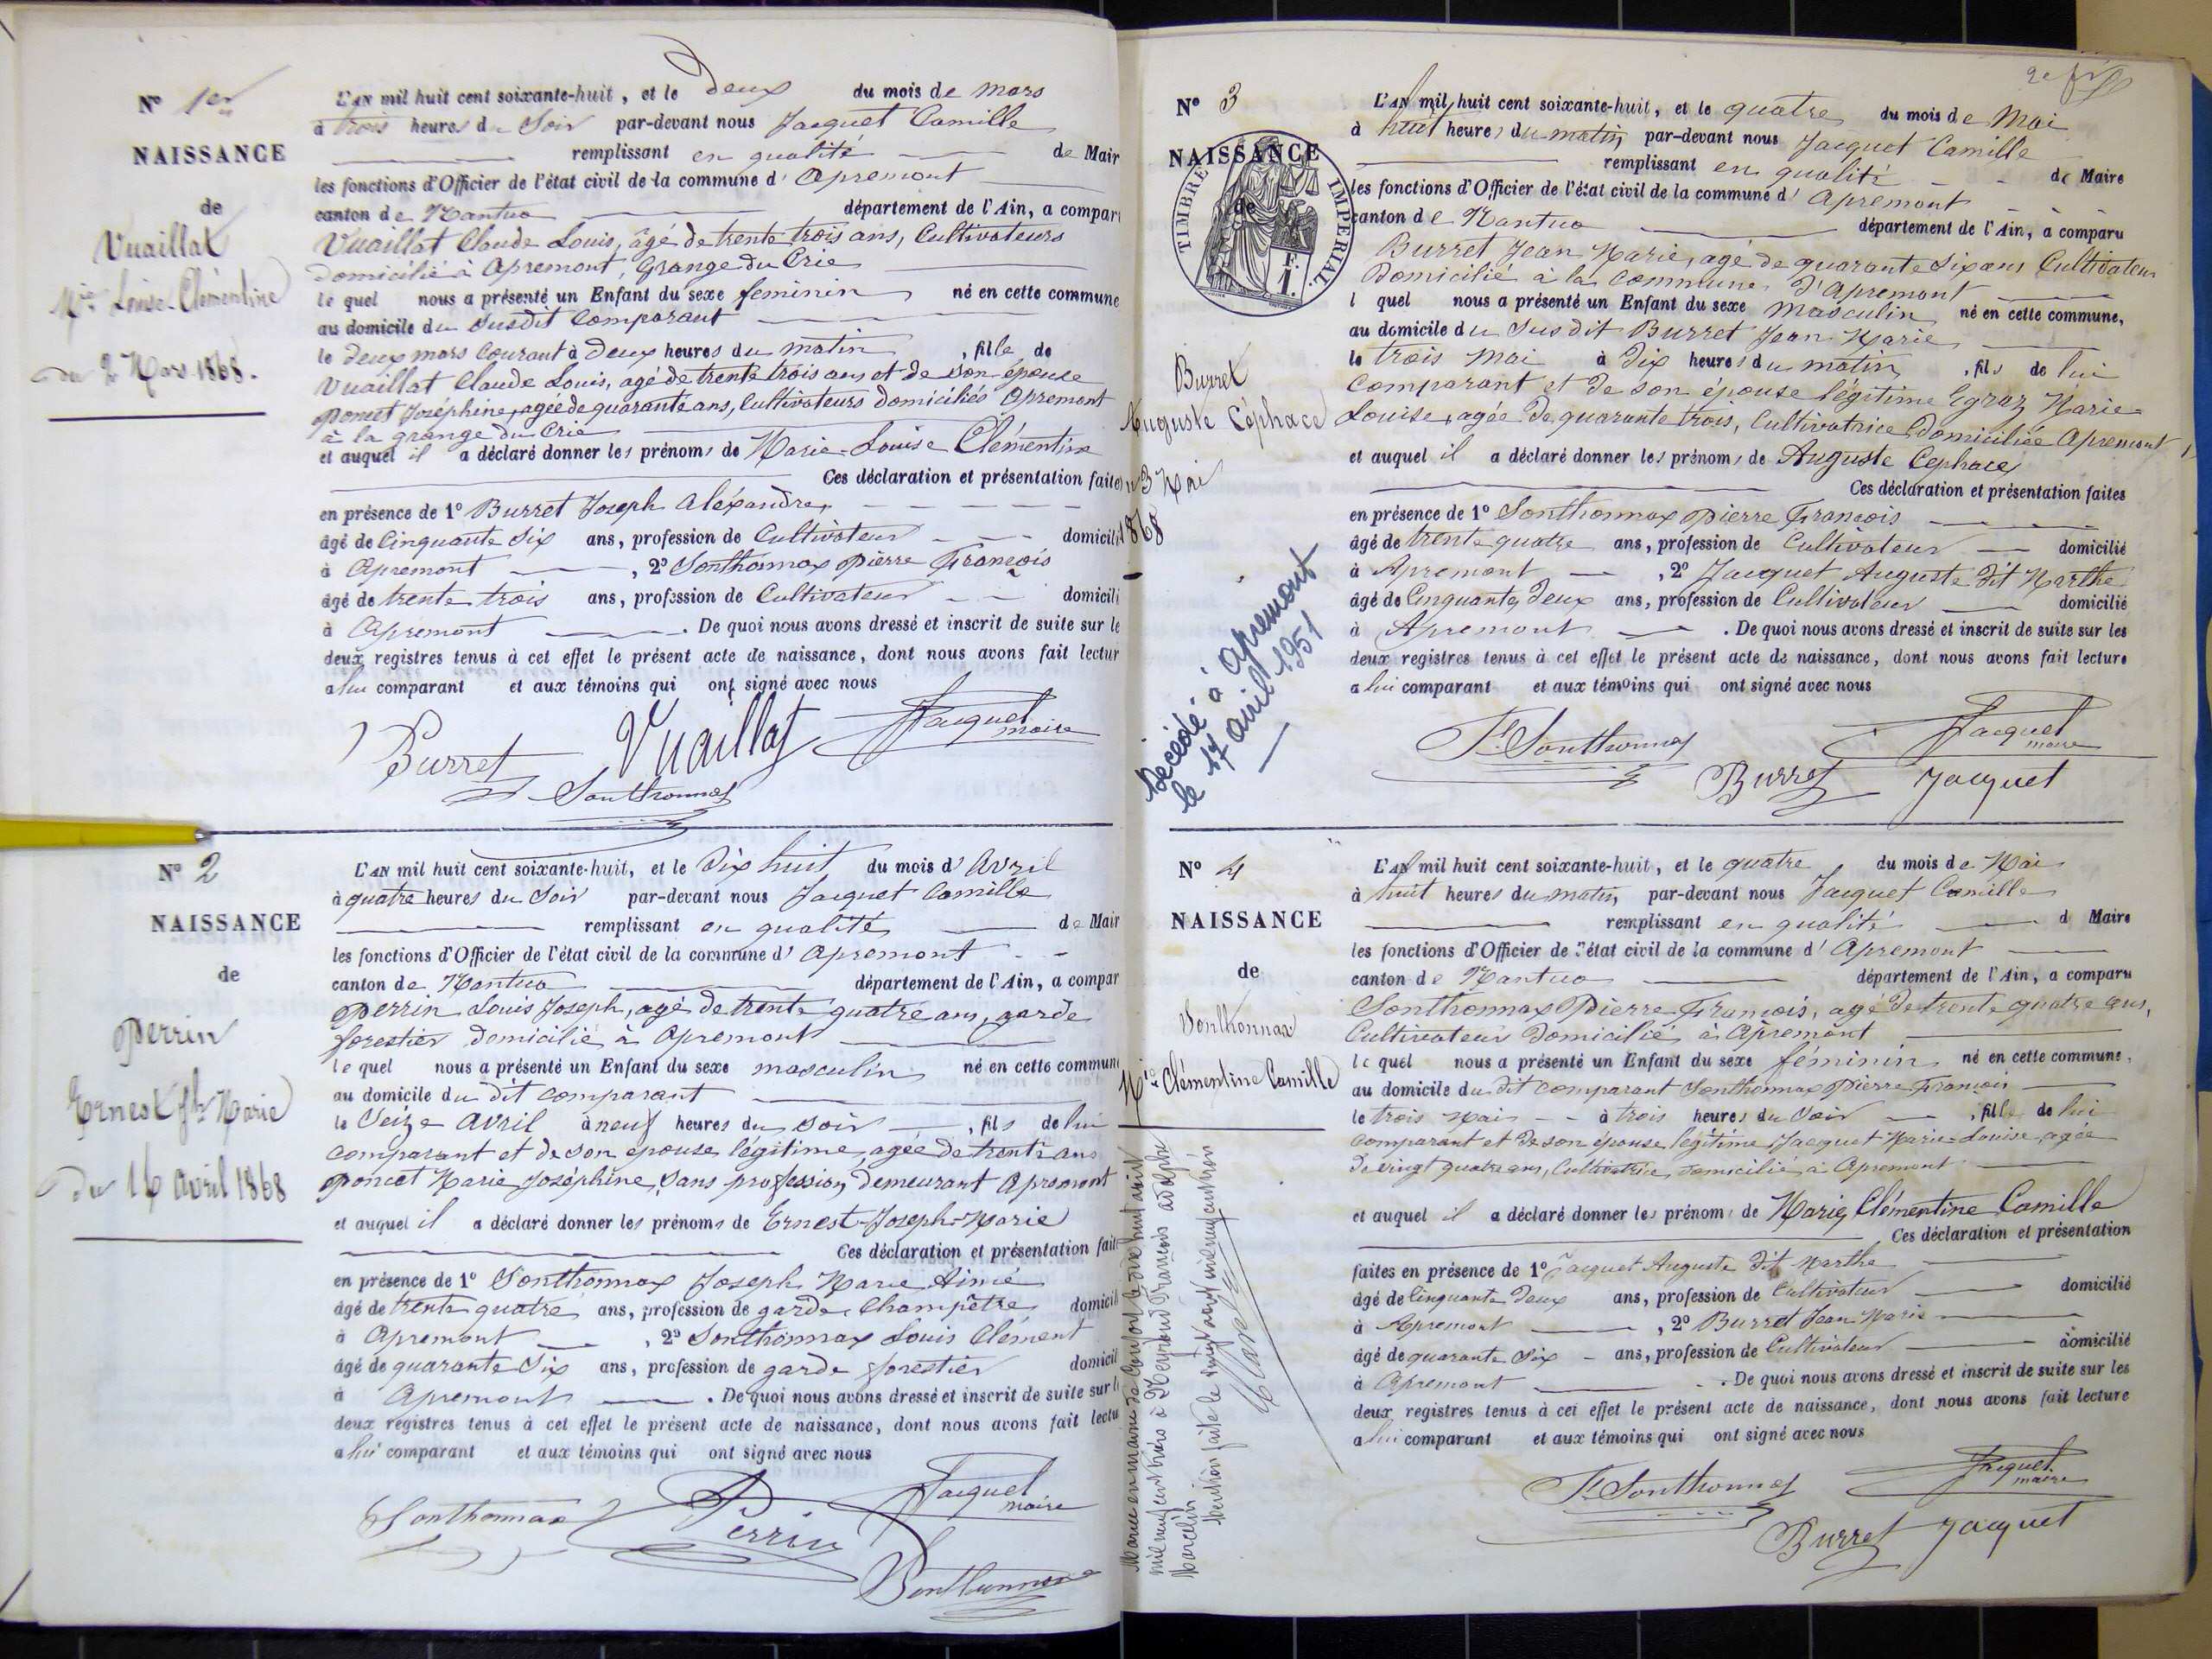 Nº 1er
NAISSANCE
de
Vuaillat
Mie Louise-Clémentine
du 2 Mars 1868.
L'AN mil huit cent soixante-huit, et le deux du mois de mars
à trois heures du Soir par-devant nous Jacquet Camille
remplissant en qualité de Mair
les fonctions d'Officier de l'état civil de la commune d' Apremont
canton de Nantua département de l'Ain, a compar
Vuaillat Claude Louis, âgé de trente trois ans, Cultivateurs
domicilié à Apremont, Grange du Crie
le quel nous a présenté un Enfant du sexe feminin né en cette commune
au domicile du susdit Comparant
le deux mars Courant à deux heures du matin, fille de
Vuaillat Claude Louis, agé de trente trois ans et de son épouse
poncet Joséphine, agée de quarante ans, Cultivateurs domiciliés Apremont
à la grange du Crie
et auquel il a déclaré donner les prénoms de Marie-Louise Clémentine
Ces déclaration et présentation faites
en présence de 1º Burret Joseph Aléxandre,
âgé de Cinquante Six ans, profession de Cultivateur domicili
à Apremont, 2º Sonthonnax Pierre François
âgé de trente trois ans, profession de Cultivateur domicili
à Apremont. De quoi nous avons dressé et inscrit de suite sur le
deux registres tenus à cet effet le présent acte de naissance, dont nous avons fait lectur
a lui comparant et aux témoins qui ont signé avec nous
Burret Vuaillat Jacquet
maire
Sonthonnax
Nº 2
NAISSANCE
de
Perrin
Ernest Jh Marie
du 16 Avril 1868
L'AN mil huit cent soixante-huit, et le Dix huit du mois d' Avril
à quatre heures du Soir par-devant nous Jacquet Camille
remplissant en qualité de Mair
les fonctions d'Officier de l'état civil de la commune d' Apremont
canton de Nantua département de l'Ain, a compar
Perrin Louis Joseph, agé de trente quatre ans, garde
forestier domicilié à Apremont
le quel nous a présenté un Enfant du sexe masculin né en cette commun
au domicile du dit comparant
le Seize Avril à neuf heures du soir, fils de lui
comparant et de son épouse légitime, agée de trente ans
poncet Marie Joséphine, sans profession, demeurant Apremont
et auquel il a déclaré donner les prénoms de Ernest-Joseph-Marie
Ces déclaration et présentation fait
en présence de 1º Sonthonnax Joseph Marie Aimé
âgé de trente quatre ans, profession de garde Champêtre domicil
à Apremont, 2º Sonthonnax Louis Clément
âgé de quarante Six ans, profession de garde forestier domicil
à Apremont. De quoi nous avons dressé et inscrit de suite sur l
deux registres tenus à cet effet le présent acte de naissance, dont nous avons fait lectu
a lui comparant et aux témoins qui ont signé avec nous
Sonthonnax Perrin Jacquet
maire
Sonthonnax
Nº 3
NAISSANCE
de
TIMBRE IMPERIAL
F.
1.
Burret
Auguste Céphace
3 Mai
1868
Décédé à Apremont
le 17 avril 1951
L'AN mil huit cent soixante-huit, et le quatre du mois de Mai
à huit heures du matin, par-devant nous Jacquet Camille
remplissant en qualité de Maire
les fonctions d'Officier de l'état civil de la commune d' Apremont
canton de Nantua département de l'Ain, a comparu
Burret Jean Marie, agé de quarante Six ans Cultivateur
Domicilié à la Commune d'Apremont
l quel nous a présenté un Enfant du sexe masculin né en cette commune,
au domicile du Sus dit Burret Jean Marie
le trois Mai à Dix heures du matin, fils de lui
Comparant et de son épouse légitime Egraz Marie
Louise, agée de quarante trois, Cultivatrice Domiciliée Apremont
et auquel il a déclaré donner les prénoms de Auguste Cephace
Ces déclaration et présentation faites
en présence de 1º Sonthonnax Pierre François
âgé de trente quatre ans, profession de Cultivateur domicilié
à Apremont, 2º Jacquet Auguste dit Marthe
âgé de Cinquante Deux ans, profession de Cultivateur domicilié
à Apremont. De quoi nous avons dressé et inscrit de suite sur les
deux registres tenus à cet effet le présent acte de naissance, dont nous avons fait lecture
a lui comparant et aux témoins qui ont signé avec nous
Sonthonnax Jacquet
maire
Burret Jacquet
Nº 4
NAISSANCE
de
Sonthonnax
Mie Clémentine Camille
L'AN mil huit cent soixante-huit, et le quatre du mois de Mai
à huit heures du matin, par-devant nous Jacquet Camille
remplissant en qualité d Maire
les fonctions d'Officier de l'état civil de la commune d' Apremont
canton de Nantua département de l'Ain, a comparu
Sonthonnax Pierre François, agé de trente quatre ans,
Cultivateur Domicilié à Apremont
le quel nous a présenté un Enfant du sexe féminin né en cette commune,
au domicile du dit comparant Sonthonnax Pierre François
le trois Mai à trois heures du Soir, fille de lui
comparant et de son épouse légitime Jacquet Marie-Louise, agée
de vingt quatre ans, Cultivatrice, domicilié à Apremont
et auquel il a déclaré donner les prénoms de Marie Clémentine Camille
Ces déclaration et présentation
faites en présence de 1º Jacquet Auguste dit Marthe
âgé de Cinquante Deux ans, profession de Cultivateur domicilié
à Apremont, 2º Burret Jean Marie
âgé de quarante Six ans, profession de Cultivateur domicilié
à Apremont. De quoi nous avons dressé et inscrit de suite sur les
deux registres tenus à cet effet le présent acte de naissance, dont nous avons fait lecture
a lui comparant et aux témoins qui ont signé avec nous
Sonthonnax Jacquet
maire
Burret Jacquet